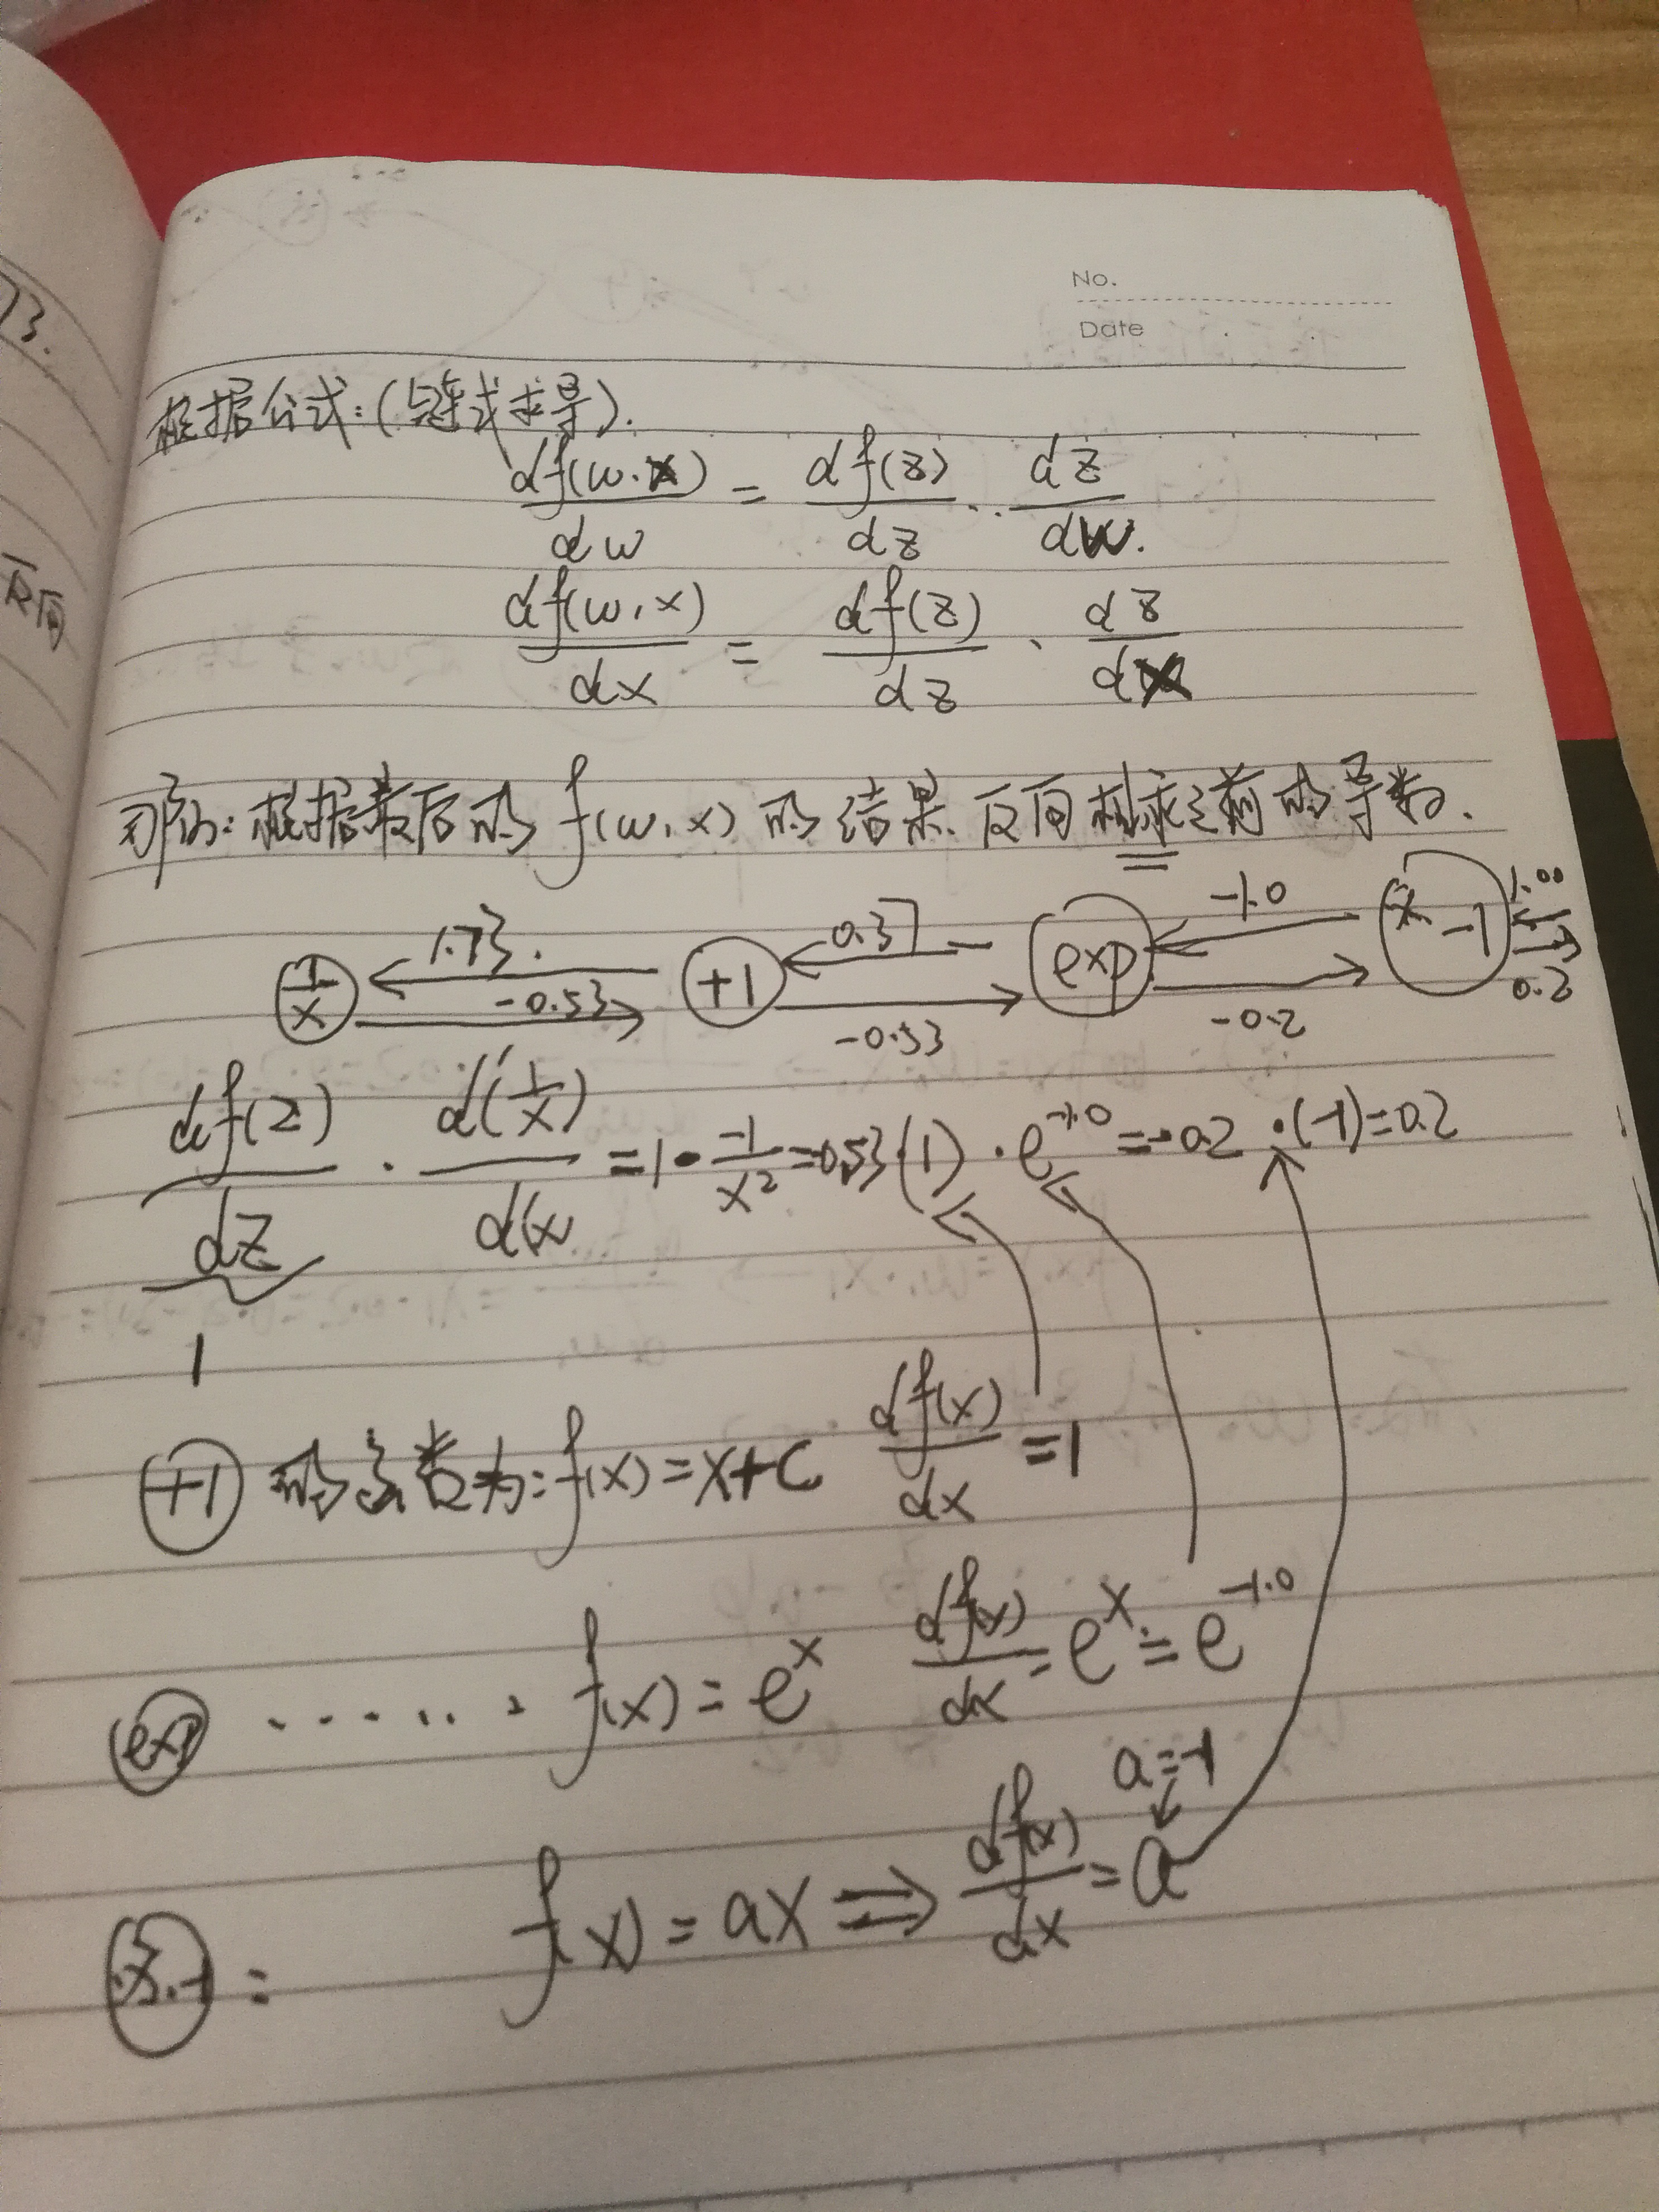 No.
Date
73.
反向
根据公式:(链式求导).
df(w.x)/dw = df(z)/dz · dz/dw.
df(w,x)/dx = df(z)/dz · dz/dx
那么:根据最后的 f(w,x) 的结果.反向推求之前的导数.
1/x ← 1.73. +1 ← 0.37 exp ← -1.0 * -1 ← 1.00
→ -0.53 → -0.53 → -0.2 → 0.2
df(z)/dz · d(1/x)/dx = 1 · -1/x² = -0.53 (1) · e^-1.0 = -0.2 · (-1) = 0.2
1
+1 的函数为: f(x) = x+c df(x)/dx = 1
exp ······ f(x) = e^x df(x)/dx = e^x = e^-1.0
a=-1
-1 = f(x) = ax ⇒ df(x)/dx = a